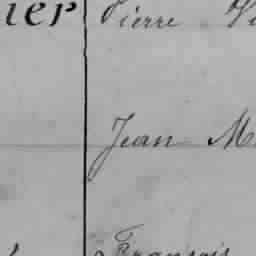 ier Pierre
Jean M
François